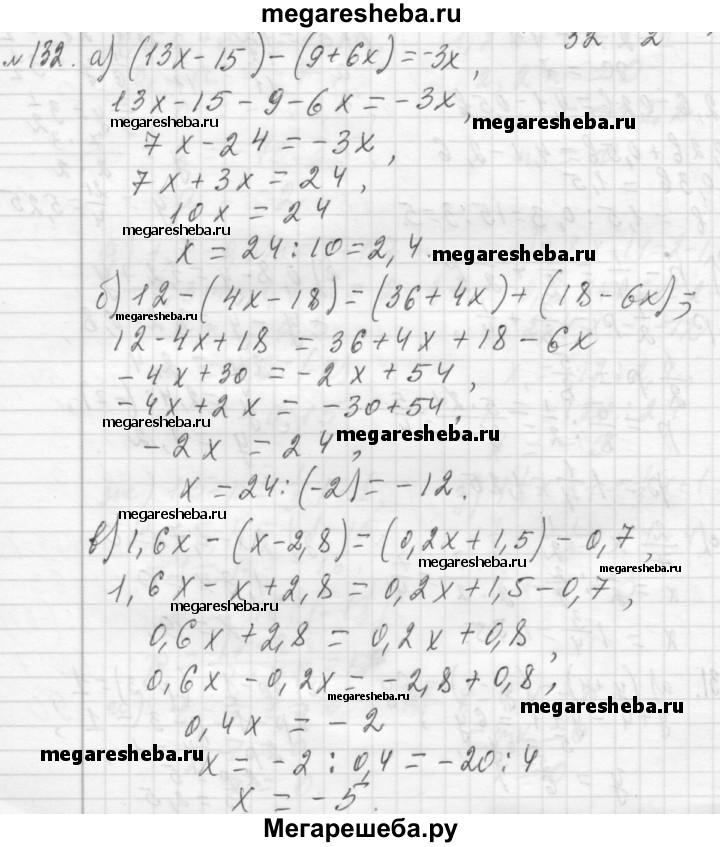 megaresheba.ru
№132. а) (13x-15)-(9+6x)=-3x,
32 2
13x-15-9-6x=-3x,
megaresheba.ru
megaresheba.ru
7x-24=-3x,
7x+3x=24,
10x=24
megaresheba.ru
x=24:10=2,4.
megaresheba.ru
б) 12-(4x-18)=(36+4x)+(18-6x);
megaresheba.ru
12-4x+18=36+4x+18-6x
-4x+30=-2x+54,
-4x+2x=-30+54,
megaresheba.ru
megaresheba.ru
-2x=24,
x=24:(-2)=-12.
megaresheba.ru
в) 1,6x-(x-2,8)=(0,2x+1,5)-0,7,
megaresheba.ru
megaresheba.ru
1,6x-x+2,8=0,2x+1,5-0,7,
megaresheba.ru
0,6x+2,8=0,2x+0,8,
0,6x-0,2x=-2,8+0,8,
megaresheba.ru
megaresheba.ru
0,4x=-2
megaresheba.ru
x=-2:0,4=-20:4
megaresheba.ru
x=-5.
Мегарешеба.ру